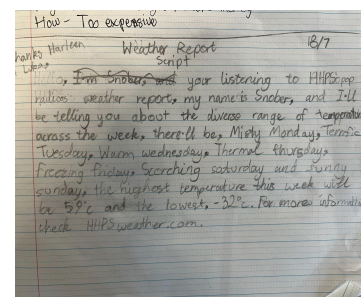 How - Too expensive
18/7
Thanks Harleen
Lucas,
Weather Report
Script
Hello, I'm Snober, and your listening to HHPS pop
radios weather report, my name is Snober, and I'll
be telling you about the diverse range of temperature
across the week, there'll be, Misty Monday, Terrific
Tuesday, Warm wednesday, Thermal thursday,
freezing friday, Scorching saturday and sunny
sunday, the highest temperature this week will
be 59°c and the lowest, -32°c. For more informatio
check HHPSweather.com.